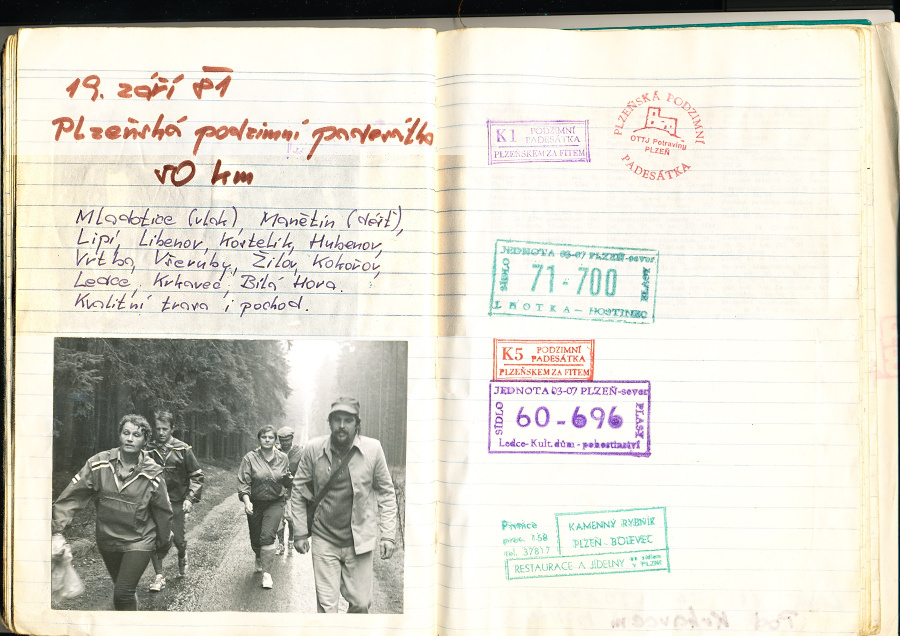 19. září 81
Plzeňská podzimní padesátka
50 km
Mladotice (vlak) Manětín (déšť),
Lipí, Libenov, Kostelík, Hubenov,
Vrtbo, Všeruby, Žilov, Kokořov,
Ledce, Krkavec, Bílá Hora.
Kvalitní trava i pochod.
K1 PODZIMNÍ
PADESÁTKA
PLZEŇSKEM ZA FITEM
PLZEŇSKÁ PODZIMNÍ
OTTJ Potraviny
PLZEŇ
PADESÁTKA
JEDNOTA 03-07 PLZEŇ-sever
SÍDLO
71-700
LHOTKA - HOSTINEC
K5 PODZIMNÍ
PADESÁTKA
PLZEŇSKEM ZA FITEM
JEDNOTA 03-07 PLZEŇ-sever
SÍDLO
60-696
PLASY
Ledce-Kult. dům - pohostinství
Pivnice
prov. 158
tel. 37817
KAMENNÝ RYBNÍK
PLZEŇ - BOLEVEC
RESTAURACE A JÍDELNY se sídlem
v PLZNI